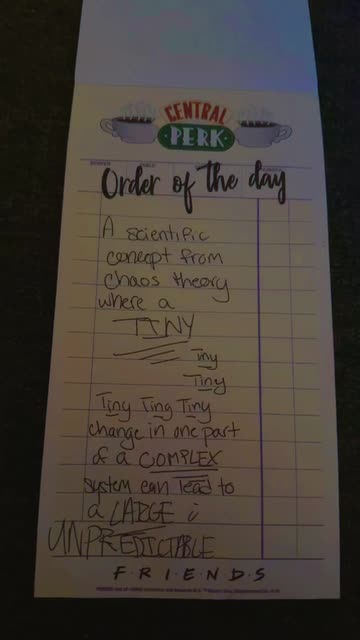 CENTRAL
PERK
Order of the day
A scientific
concept from
chaos theory
where a
TINY
Tiny
Tiny
Tiny Tiny Tiny
change in one part
of a COMPLEX
system can lead to
a LARGE &
UNPREDICTABLE
F·R·I·E·N·D·S